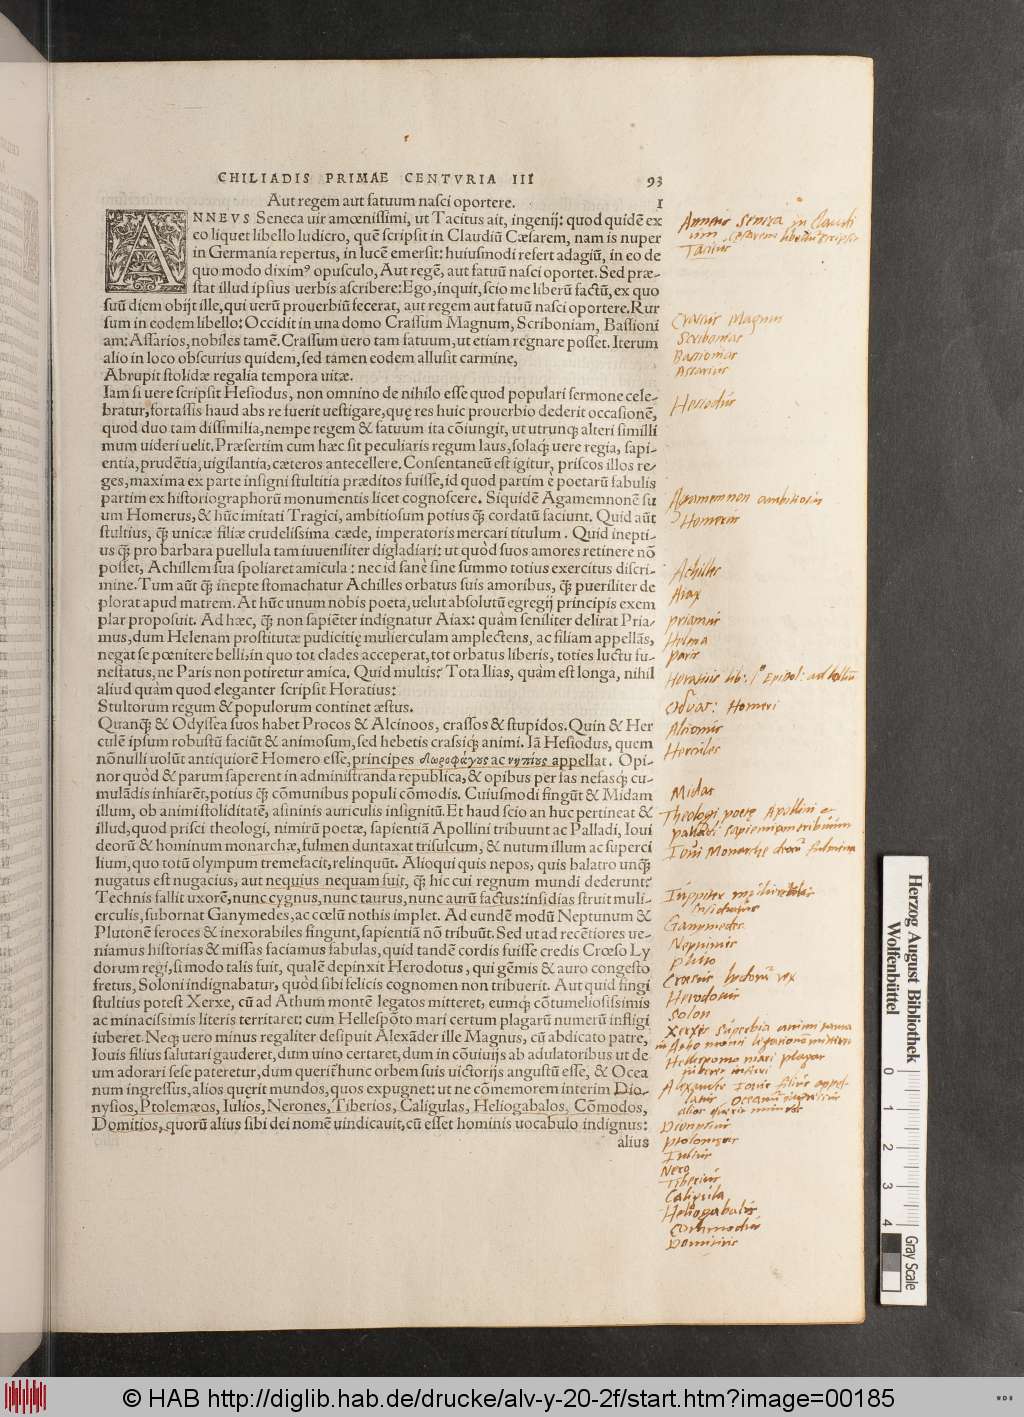 CHILIADIS PRIMAE CENTVRIA III 93
Aut regem aut fatuum nasci oportere. 1
ANNEVS Seneca uir amœnissimi, ut Tacitus ait, ingenij: quod quidẽ ex
eo liquet libello ludicro, quẽ scripsit in Claudiũ Cæsarem, nam is nuper
in Germania repertus, in lucẽ emersit: huiusmodi refert adagiũ, in eo de
quo modo diximꝰ opusculo, Aut regẽ, aut fatuũ nasci oportet. Sed præ-
stat illud ipsius uerbis ascribere: Ego, inquit, scio me liberũ factũ, ex quo
suũ diem obijt ille, qui uerũ prouerbiũ fecerat, aut regem aut fatuũ nasci oportere. Rur
sum in eodem libello: Occidit in una domo Crassum Magnum, Scriboniam, Bassioni
am: Assarios, nobiles tamẽ. Crassum uero tam fatuum, ut etiam regnare posset. Iterum
alio in loco obscurius quidem, sed tamen eodem allusit carmine,
Abrupit stolidæ regalia tempora uitæ.
Iam si uere scripsit Hesiodus, non omnino de nihilo esse quod populari sermone cele-
bratur, fortassis haud abs re fuerit uestigare, quę res huic prouerbio dederit occasionẽ,
quod duo tam dissimilia, nempe regem & fatuum ita cõiungit, ut utrunq; alteri simillimum
mum uideri uelit. Præsertim cum hæc sit peculiaris regum laus, solaq; uere regia, sapi-
entia, prudẽtia, uigilantia, cæteros antecellere. Consentaneũ est igitur, priscos illos re-
ges, maxima ex parte insigni stultitia præditos fuisse, id quod partim è poetarũ fabulis
partim ex historiographorũ monumentis licet cognoscere. Siquidẽ Agamemnonẽ su
um Homerus, & hũc imitati Tragici, ambitiosum potius q̃; cordatũ faciunt. Quid aũt
stultius, q̃; unicæ filiæ crudelissima cæde, imperatoris mercari titulum. Quid inepti-
us q̃; pro barbara puellula tam iuueniliter digladiari: ut quòd suos amores retinere nõ
posset, Achillem sua spoliaret amicula: nec id sanè sine summo totius exercitus discri-
mine. Tum aũt q̃; inepte stomachatur Achilles orbatus suis amoribus, q̃; pueriliter de
plorat apud matrem. At hũc unum nobis poeta, uelut absolutũ egregij principis exem
plar proposuit. Ad hæc, q̃; non sapiẽter indignatur Aiax: quàm seniliter delirat Pria-
mus, dum Helenam prostitutæ pudicitię mulierculam amplectens, ac filiam appellãs,
negat se pœnitere belli, in quo tot clades acceperat, tot orbatus liberis, toties luctu fu-
nestatus, ne Paris non potiretur amica. Quid multis: Tota Ilias, quàm est longa, nihil
aliud quàm quod eleganter scripsit Horatius:
Stultorum regum & populorum continet æstus.
Quanq̃; & Odyssea suos habet Procos & Alcinoos, crassos & stupidos. Quin & Her
culẽ ipsum robustũ faciũt & animosum, sed hebetis crassiq; animi. Iã Hesiodus, quem
nõnulli uolũt antiquiorẽ Homero esse, principes δωροφάγους ac νηπίους appellat. Opi-
nor quòd & parum saperent in administranda republica, & opibus per fas nefasq; cu-
mulãdis inhiarẽt, potius q̃; cõmunibus populi cõmodis. Cuiusmodi fingũt & Midam
illum, ob animi stoliditatẽ, asininis auriculis insignitũ. Et haud scio an huc pertineat &
illud, quod prisci theologi, nimirũ poetæ, sapientiã Apollini tribuunt ac Palladi, Ioui
deorũ & hominum monarchæ, fulmen duntaxat trisulcum, & nutum illum ac superci
lium, quo totũ olympum tremefacit, relinquũt. Alioqui quis nepos, quis balatro unq̃;
nugatus est nugacius, aut nequius nequam fuit, q̃; hic cui regnum mundi dederunt:
Technis fallit uxorẽ, nunc cygnus, nunc taurus, nunc aurũ factus: insidias struit muli-
erculis, subornat Ganymedes, ac cœlũ nothis implet. Ad eundẽ modũ Neptunum &
Plutonẽ feroces & inexorabiles fingunt, sapientiã nõ tribuũt. Sed ut ad recẽtiores ue-
niamus historias & missas faciamus fabulas, quid tandẽ cordis fuisse credis Crœso Ly
dorum regi, si modo talis fuit, qualẽ depinxit Herodotus, qui gẽmis & auro congesto
fretus, Soloni indignabatur, quòd sibi felicis cognomen non tribuerit. Aut quid fingi
stultius potest Xerxe, cũ ad Athum montẽ legatos mitteret, eumq; cõtumeliosissimis
ac minacissimis literis territaret: cum Hellespõto mari certum plagarũ numerũ infligi
iuberet. Neq; uero minus regaliter desipuit Alexãder ille Magnus, cũ abdicato patre,
Iouis filius salutari gauderet, dum uino certaret, dum in cõuiuijs ab adulatoribus ut de
um adorari sese pateretur, dum queriẽ hunc orbem suis uictorijs angustũ esse, & Ocea
num ingressus, alios quęrit mundos, quos expugnet: ut ne cõmemorem interim Dio-
nysios, Ptolemæos, Iulios, Nerones, Tiberios, Caligulas, Heliogabalos, Cõmodos,
Domitios, quorũ alius sibi dei nomẽ uindicauit, cũ esset hominis uocabulo indignus:
alius
Anneus Seneca in Claudi
um Cesarem libellũ scripsit
Tacitus
Crassus Magnus
Scribonias
Bassionias
Assarius
Hesiodus
Agamemnon ambitiosus
Homerus
Achilles
Aiax
priamus
Helena
paris
Horatius lib: 1º Epistol: ad Lollium
Odysseae: Homeri
Alcinous
Hercules
Midas
Theologi poetę Apollini et
palladi sapientiam tribuunt
Ioui Monarchę deorũ fulmina
Iuppiter mulierculis
insidiatus
Ganymedes
Neptunus
pluto
Cræsus lydorũ rex
Herodotus
Solon
Xerxes superbia
Hellesponto mari plagas
iuberet infligi
Alexander Iouis filius appel-
latus Oceanũ ingressus
alios quęrit mundos
Dionysius
ptolomęus
Iulius
Nero
Tiberius
Caligula
Heliogabalus
Commodus
Domitius
Herzog August Bibliothek
Wolfenbüttel
0 1 2 3 4
Gray Scale
© HAB http://diglib.hab.de/drucke/alv-y-20-2f/start.htm?image=00185